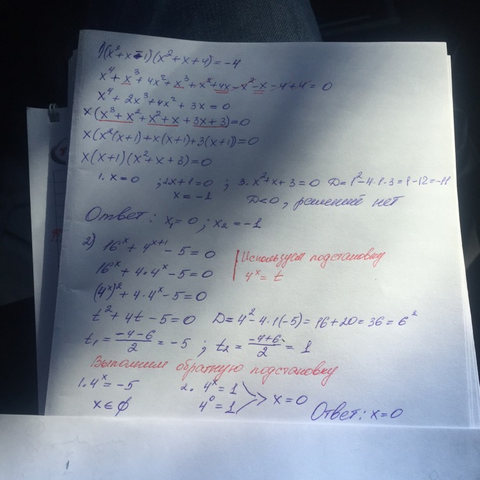 1) (x²+x-1)(x²+x+4)=-4
x⁴+x³+4x²+x³+x²+4x-x²-x-4+4=0
x⁴+2x³+4x²+3x=0
x(x³+x²+x²+x+3x+3)=0
x(x²(x+1)+x(x+1)+3(x+1))=0
x(x+1)(x²+x+3)=0
1. x=0 ; 2x+1=0 ; 3. x²+x+3=0 D=1²-4·1·3=1-12=-11
x=-1 D<0, решений нет
Ответ: x₁=0; x₂=-1
2) 16ˣ+4ˣ⁺¹-5=0 Используем подстановку
16ˣ+4·4ˣ-5=0 4ˣ=t
(4ˣ)²+4·4ˣ-5=0
t²+4t-5=0 D=4²-4·1(-5)=16+20=36=6²
t₁=(-4-6)/2=-5 ; t₂=(-4+6)/2=1
Выполним обратную подстановку
1. 4ˣ=-5 2. 4ˣ=1 > x=0
x∈∅ 4⁰=1 Ответ: x=0